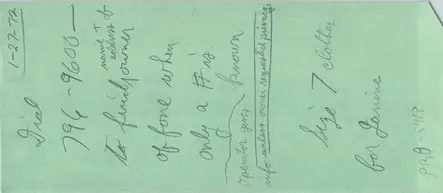 1-27-72
Dial
796-9600 —
name +
address of
to find owner
of fone when
only a # is
known
operator gives
info unless owner requested privacy
Size 7 clothes
for Janine